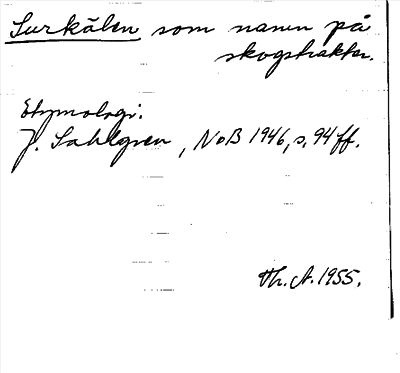 Surkålen som namn på
skogstrakter.
Etymologi:
J. Sahlgren, NoB 1946, s. 94 ff.
Th. A. 1955.